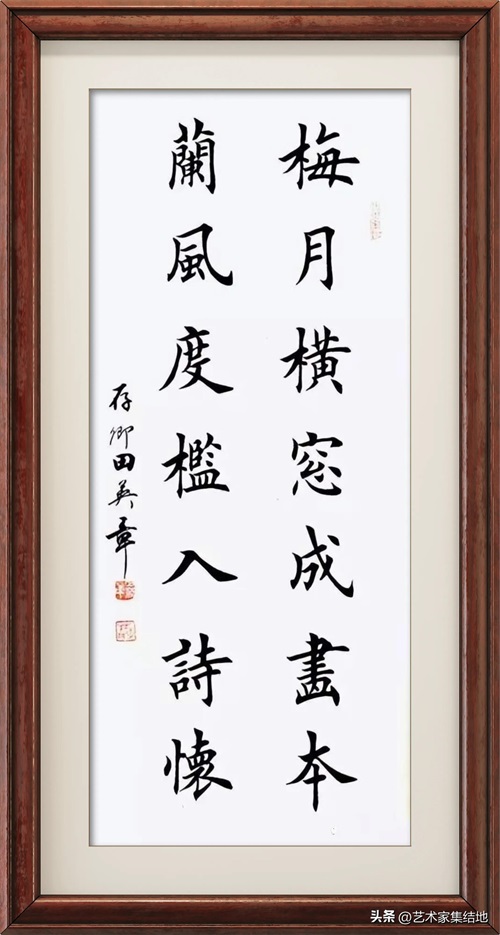 梅月橫窓成畫本
蘭風度檻入詩懷
存卿田英章
头条 @艺术家集结地